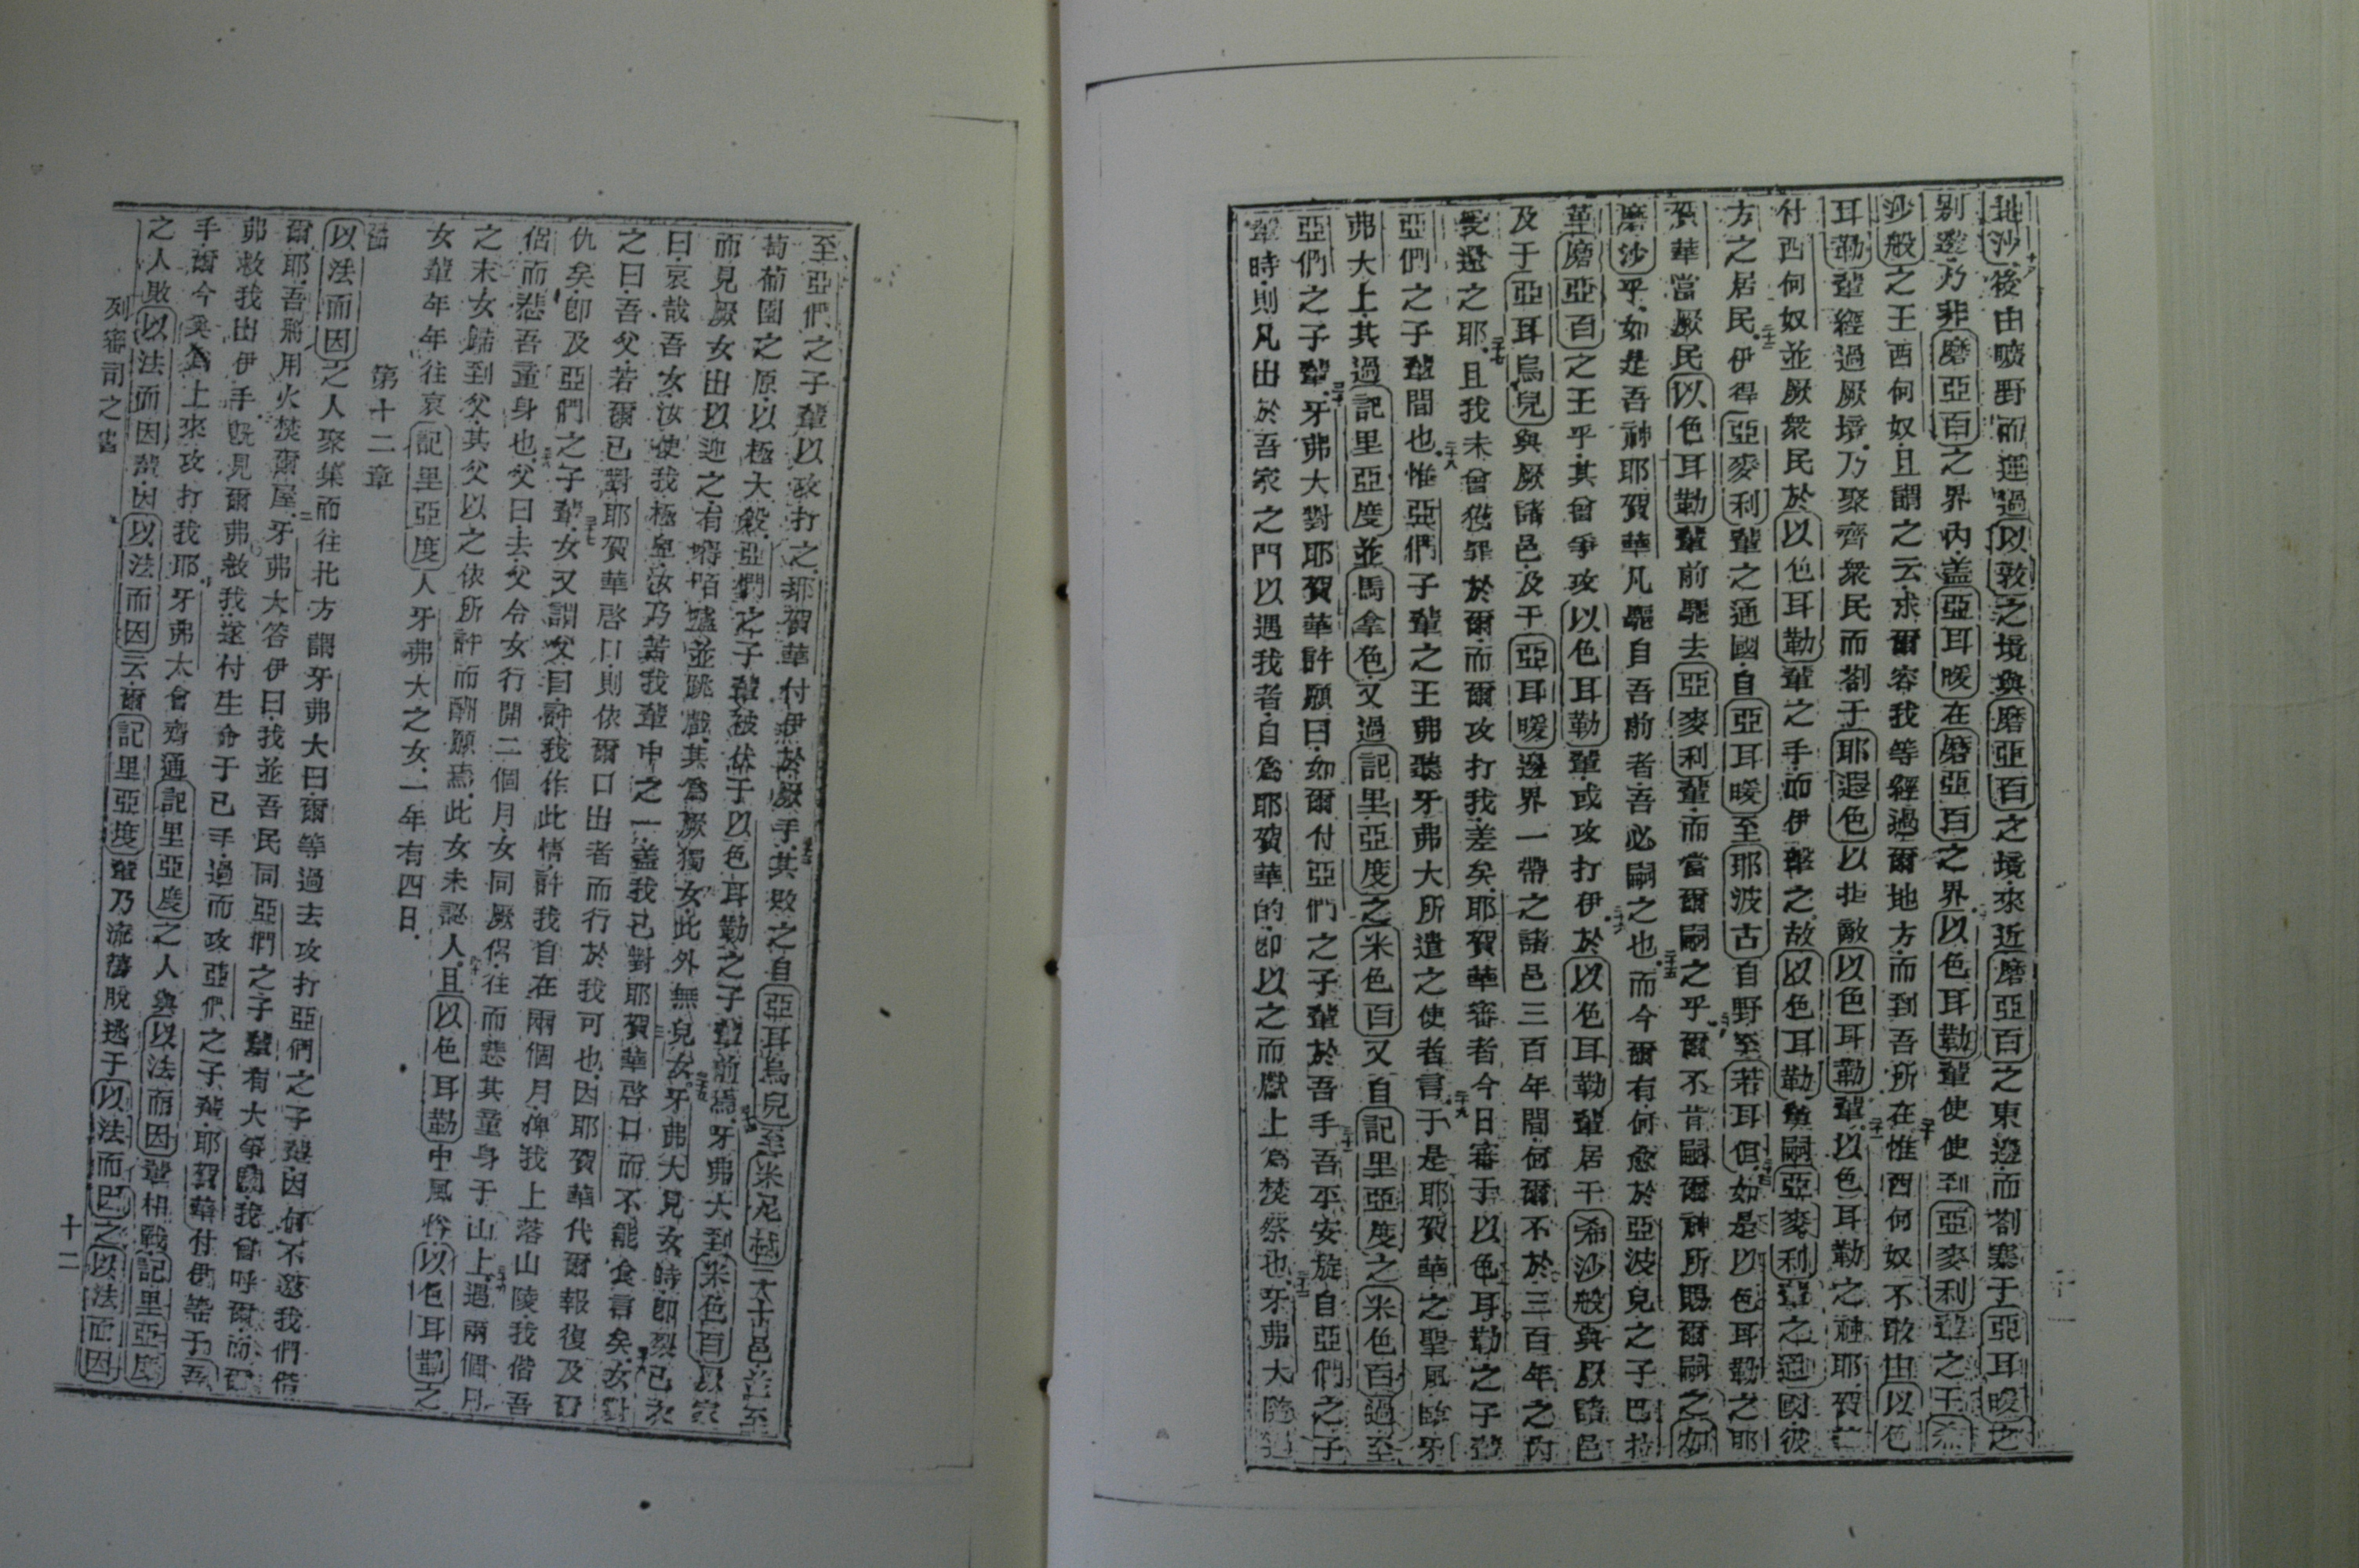 地沙後由曠野而運過以敦之境與磨亞百之境來近磨亞百之東邊而劄寨于亞耳暖之
別邊乃非磨亞百之界內盖亞耳暖在磨亞百之界以色耳勒輩使使到亞麥利輩之王希
沙般之王西何奴且謂之云求爾容我等經過爾地方而到吾所在惟西何奴不敢由以色
耳勒輩經過厥境乃聚齊衆民而劄于耶遐色以拒敵以色耳勒輩以色耳勒之神耶賀華
付西何奴並厥衆民於以色耳勒輩之手而伊擊之故以色耳勒輩嗣亞麥利輩之通國彼
方之居民伊得亞麥利輩之通國自亞耳暖至耶波古自野至若耳但如是以色耳勒之耶
賀華當厥民以色耳勒輩前驅去亞麥利輩而當爾嗣之乎爾不肯嗣爾神所賜爾嗣之如
磨沙乎如是吾神耶賀華凡驅自吾前者吾必嗣之也而今爾有何愈於亞波兒之子巴拉
革磨亞百之王乎其曾爭攻以色耳勒輩或攻打伊於以色耳勒輩居于希沙般與厥諸邑
及于亞耳烏兒與厥諸邑及于亞耳暖邊界一帶之諸邑三百年間何爾不於三百年之內
受還之耶且我未曾獲罪於爾而爾攻打我差矣耶賀華審者今日審于以色耳勒之子輩
亞們之子輩間也惟亞們子輩之王弗聽牙弗大所遣之使者言于是耶賀華之聖風臨牙
弗大上其過記里亞度並馬拿色又過記里亞度之米色百又自記里亞度之米色百過至
亞們之子輩牙弗大對耶賀華許願曰如爾付亞們之子輩於吾手吾平安旋自亞們之子
輩時則凡出於吾家之門以遇我者自為耶賀華的即以之而獻上為焚祭也牙弗大隨過
至亞們之子輩以攻打之耶賀華付伊於厥手其敗之自亞耳烏兒至米尼 二十邑並至
萄葡園之原以極大殺亞們之子輩被伏于以色耳勒之子輩前焉牙弗大到米色百厥家
而見厥女出以迎之有 並跳戲其為厥獨女此外無兒女牙弗大見女時即裂己衣
曰哀哉吾女汝使我極卑汝乃苦我輩中之一盖我已對耶賀華啓口而不能食言矣女對
之曰吾父若爾已對耶賀華啓口則依爾口出者而行於我可也因耶賀華代爾報復及爾
仇矣即及亞們之子輩女又謂父曰許我作此情許我自在兩個月俾我上落山陵我偕吾
侶而悲吾童身也父曰去父令女行開二個月女同厥侶往而悲其童身于山上過兩個月
之末女歸到父其父以之依所許而酬願焉此女未認人且以色耳勒中風俗以色耳勒之
女輩年年往哀記里亞度人牙弗大之女一年有四日
第十二章
以法而因之人聚集而往北方謂牙弗大曰爾等過去攻打亞們之子輩因何不邀我們偕
爾耶吾將用火焚爾屋牙弗大答伊曰我並吾民同亞們之子輩有大爭鬬我曾呼爾而爾
弗救我出伊手旣見爾弗救我遂付生命于己手過而攻亞們之子輩耶賀華付伊等于吾
手爾今奚為上來攻打我耶牙弗大會齊通記里亞度之人與以法而因輩相戰記里亞度
之人敗以法而因輩因以法而因云爾記里亞度輩乃流蕩脫逃于以法而因之以法而因
列審司之書
十二